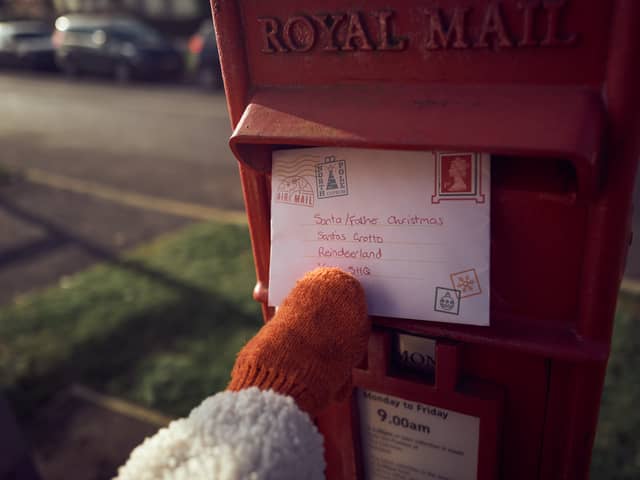 ROYAL MAIL
NORTH
POLE
AIR MAIL
Santa/Father Christmas
Santas Grotto
Reindeerland
5HQ
MON
Monday to Friday
9.00am